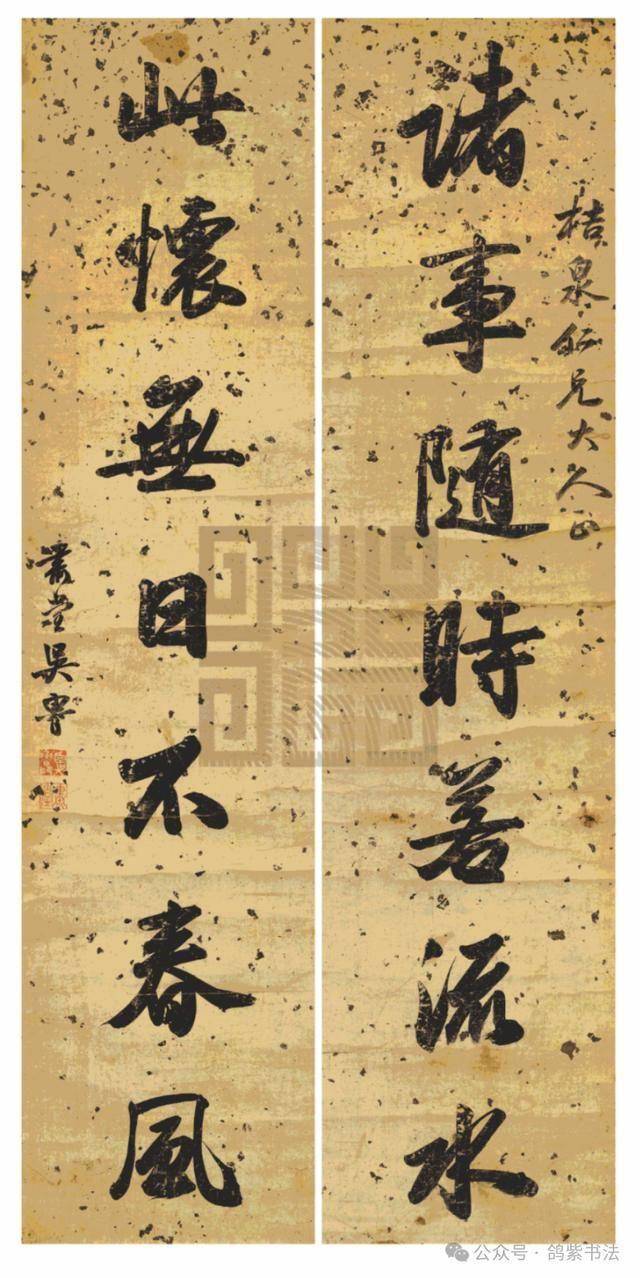 桔泉仁兄大人正
諸事隨時若流水
此懷無日不春風
肅堂吳魯
公众号·鸽紫书法